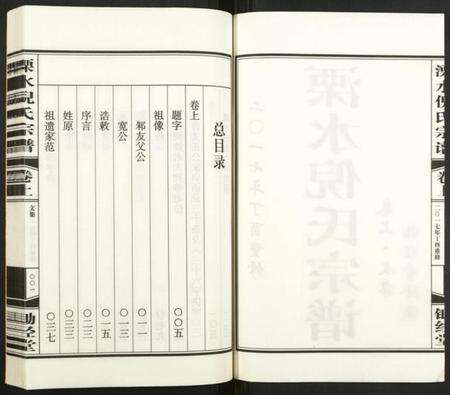 溧水倪氏宗谱
卷上
二〇一七年丁酉重修
锄经堂
总目录
卷上
题字 〇〇五
祖像
邾友父公 〇一一
宽公 〇一三
诰敕 〇一五
序言 〇二三
姓原 〇三三
祖遗家范 〇三七
溧水倪氏宗谱
卷上
文集
〇〇一
锄经堂